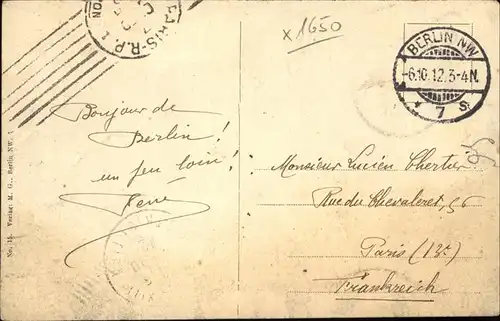 PARIS-R.P.
x1650
BERLIN NW.
-6.10.12.3-4N.
* 7 s.
Bonjour de
Berlin!
un peu loin!
Monsieur Lucien Chertier
Rue du Chevaleret, 56
Paris (13e)
Frankreich
No. 15. Verlag: M. G., Berlin NW.